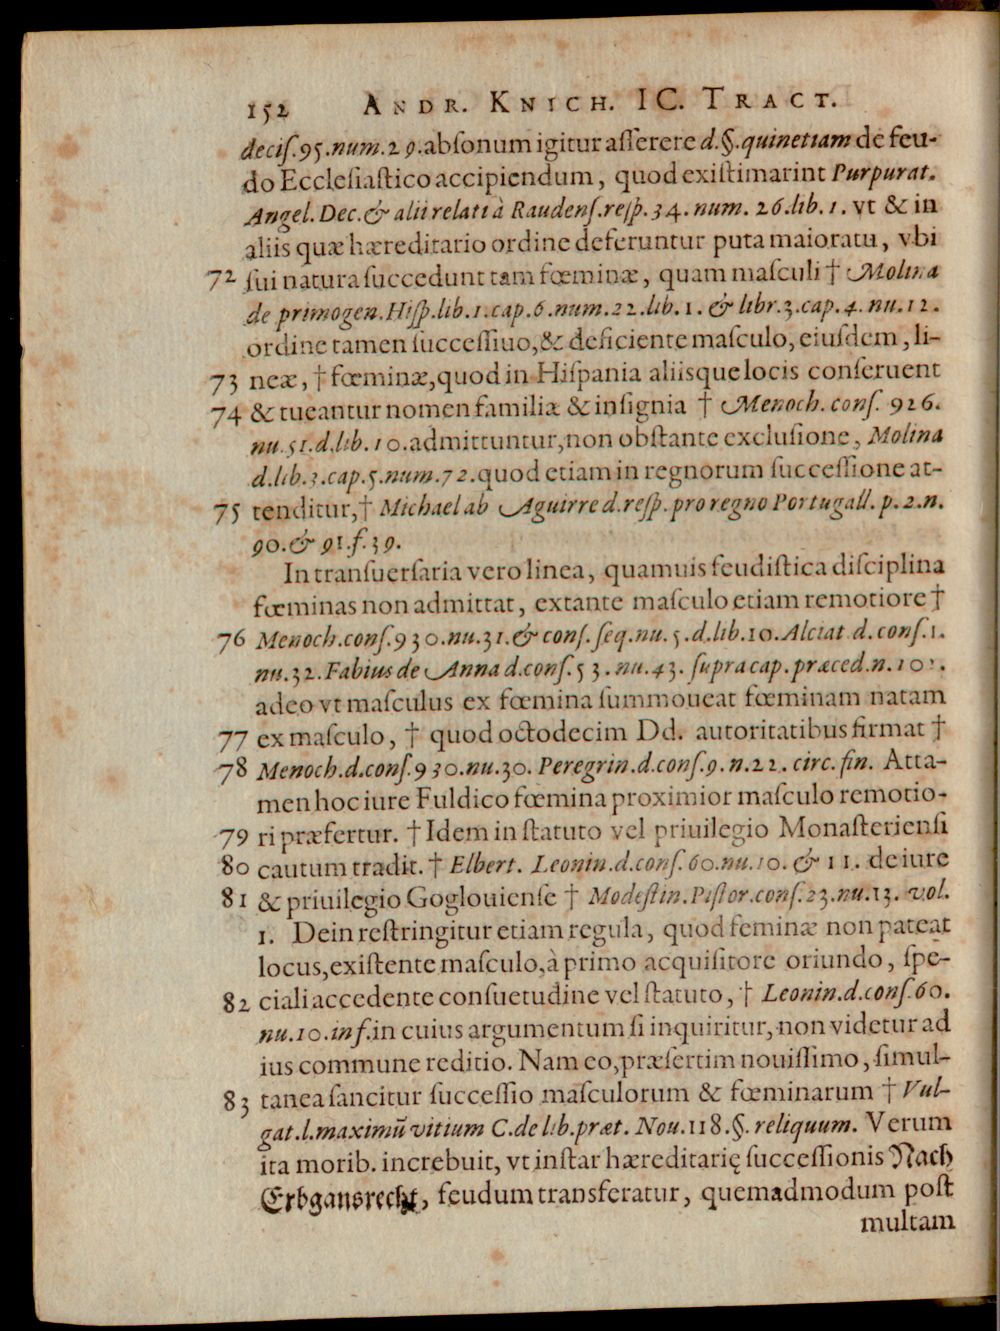 152 ANDR. KNICH. IC. TRACT.
deciſ.95.num.29.abſonum igitur aſſerere d.§.quinetiam de feu-
do Eccleſiaſtico accipiendum, quod exiſtimarint Purpurat.
Angel. Dec.& alii relati à Raudenſ.reſp.34.num. 26.lib.1. vt & in
aliis quæ hæreditario ordine deferuntur puta maioratu, vbi
72 ſui natura ſuccedunt tam fœminæ, quam maſculi † Molina
de primogen.Hiſp.lib.1.cap.6.num.22.lib.1.& libr.3.cap.4.nu.12.
ordine tamen ſucceſſiuo,& deficiente maſculo, eiuſdem, li-
73 neæ, † fœminæ,quod in Hiſpania aliisque locis conſeruent
74 & tueantur nomen familiæ & inſignia † Menoch. conſ. 926.
nu.51.d.lib.10.admittuntur,non obſtante excluſione, Molina
d.lib.3.cap.5.num.72.quod etiam in regnorum ſucceſſione at-
75 tenditur,† Michael ab Aguirre d.reſp.pro regno Portugall.p.2.n.
90.& 91.f.39.
In tranſuerſaria vero linea, quamuis feudiſtica diſciplina
fœminas non admittat, extante maſculo etiam remotiore †
76 Menoch.conſ.930.nu.31.& conſ.ſeq.nu.5.d.lib.10.Alciat d. conſ.1.
nu.32.Fabius de Anna d.conſ.53.nu.43. ſupra cap.præced.n.
adeo vt maſculus ex fœmina ſummoueat fœminam natam
77 ex maſculo, † quod octodecim Dd. autoritatibus firmat †
78 Menoch.d.conſ.930.nu.30. Peregrin.d.conſ.9.n.22. circ.fin. Atta-
men hoc iure Fuldico fœmina proximior maſculo remotio-
79 ri præfertur. † Idem in ſtatuto vel priuilegio Monaſterienſi
80 cautum tradit. † Elbert. Leonin.d.conſ.60.nu.10. & 11. de iure
81 & priuilegio Goglouienſe † Modeſtin.Piſtor.conſ.23.nu.13. vol.
1. Dein reſtringitur etiam regula, quod feminæ non pateat
locus,exiſtente maſculo,à primo acquiſitore oriundo, ſpe-
82 ciali accedente conſuetudine vel ſtatuto, † Leonin.d.conſ.60.
nu.10.inf.in cuius argumentum ſi inquiritur, non videtur ad
ius commune reditio. Nam eo,præſertim nouiſſimo, ſimul-
83 tanea ſancitur ſucceſſio maſculorum & fœminarum † Vul-
gat.l.maximũ vitium C.de lib.præt. Nou.118.§. reliquum. Verum
ita morib. increbuit, vt inſtar hæreditarię ſucceſſionis Nach
Erbgansrecht, feudum transferatur, quemadmodum poſt
multam